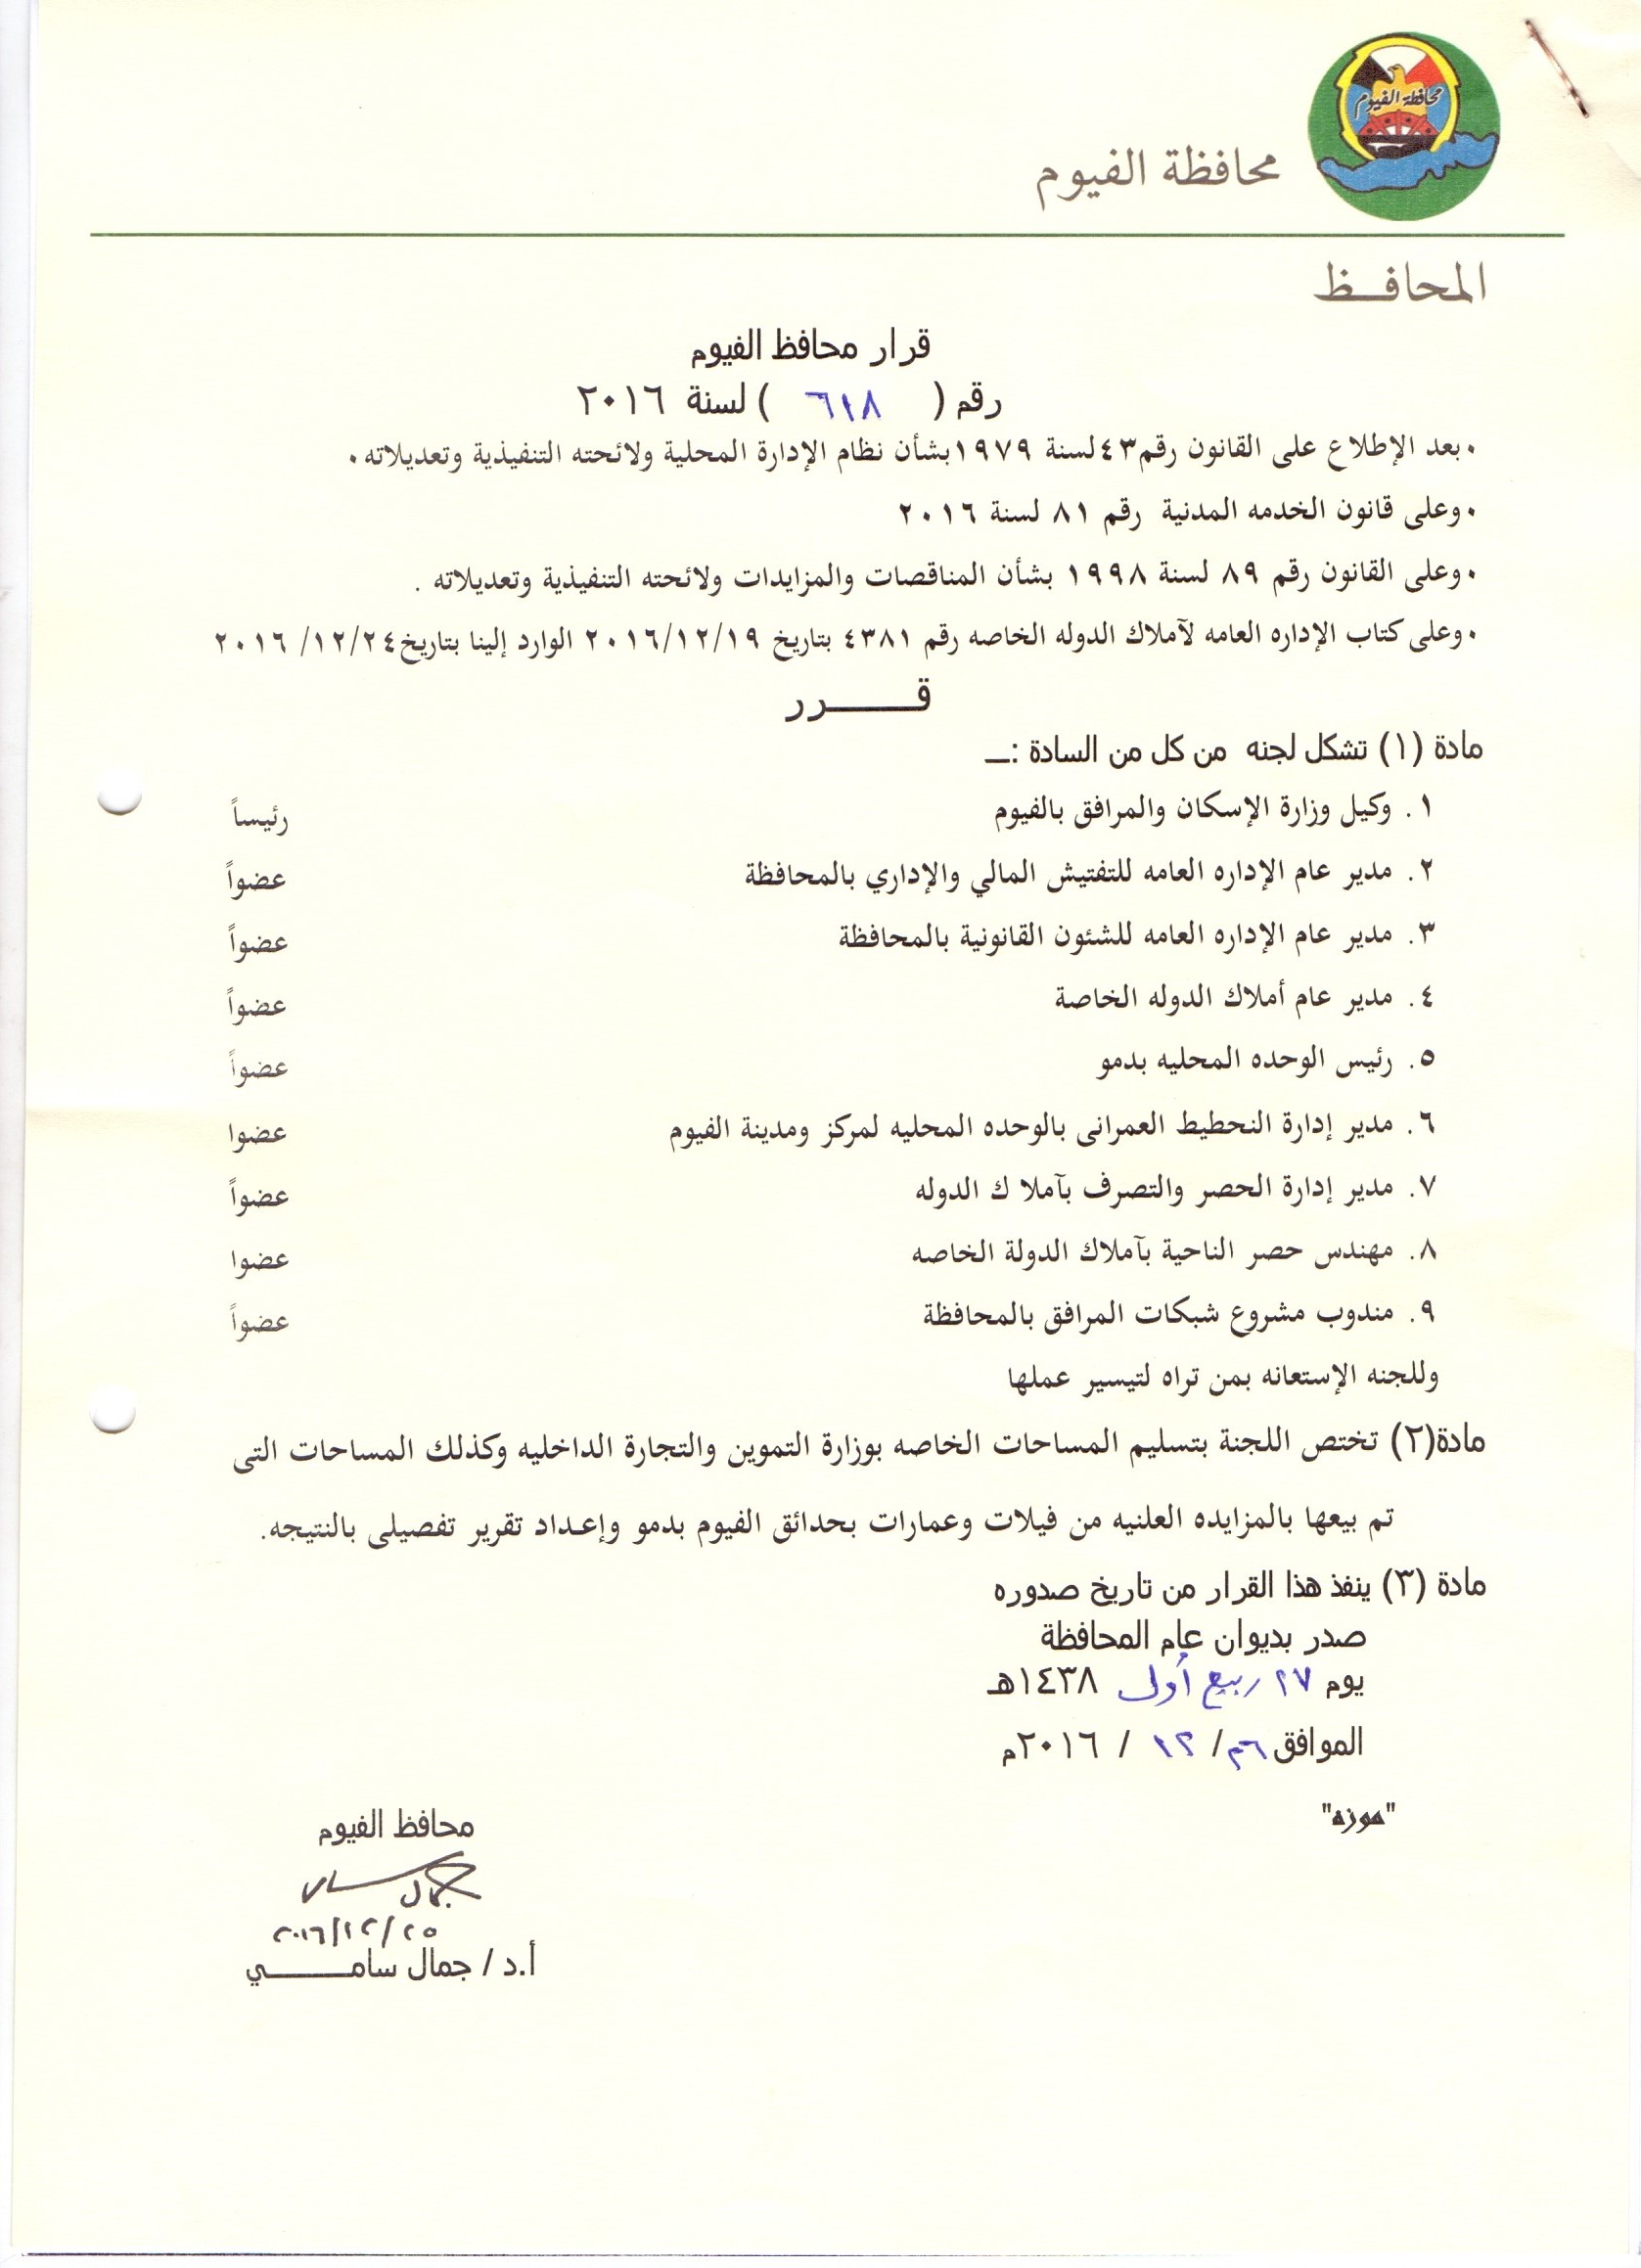 محافظة الفيوم
محافظة الفيوم
المحافـــظ
قرار محافظ الفيوم
رقم ( ٦١٨ ) لسنة ٢٠١٦
• بعد الإطلاع على القانون رقم٤٣لسنة ١٩٧٩بشأن نظام الإدارة المحلية ولائحته التنفيذية وتعديلاته •
• وعلى قانون الخدمه المدنية رقم ٨١ لسنة ٢٠١٦
• وعلى القانون رقم ٨٩ لسنة ١٩٩٨ بشأن المناقصات والمزايدات ولائحته التنفيذية وتعديلاته .
• وعلى كتاب الإداره العامه لآملاك الدوله الخاصه رقم ٤٣٨١ بتاريخ ٢٠١٦/١٢/١٩ الوارد إلينا بتاريخ٢٤/١٢/ ٢٠١٦
قــــــــرر
مادة (١) تشكل لجنه من كل من السادة :ــ
١. وكيل وزارة الإسكان والمرافق بالفيوم رئيساً
٢. مدير عام الإداره العامه للتفتيش المالي والإداري بالمحافظة عضواً
٣. مدير عام الإداره العامه للشئون القانونية بالمحافظة عضواً
٤. مدير عام أملاك الدوله الخاصة عضواً
٥. رئيس الوحده المحليه بدمو عضواً
٦. مدير إدارة النحطيط العمرانى بالوحده المحليه لمركز ومدينة الفيوم عضوا
٧. مدير إدارة الحصر والتصرف بآملا ك الدوله عضواً
٨. مهندس حصر الناحية بآملاك الدولة الخاصه عضوا
٩. مندوب مشروع شبكات المرافق بالمحافظة عضواً
وللجنه الإستعانه بمن تراه لتيسير عملها
مادة(٢) تختص اللجنة بتسليم المساحات الخاصه بوزارة التموين والتجارة الداخليه وكذلك المساحات التى
تم بيعها بالمزايده العلنيه من فيلات وعمارات بحدائق الفيوم بدمو وإعداد تقرير تفصيلى بالنتيجه.
مادة (٣) ينفذ هذا القرار من تاريخ صدوره
صدر بديوان عام المحافظة
يوم ٢٧ ربيع أول ١٤٣٨هـ
الموافق ٢٦/ ١٢ / ٢٠١٦م
"موزه"
محافظ الفيوم
جمال سامي
٢٠١٦/١٢/٢٥
أ.د / جمال سامـــــــــي